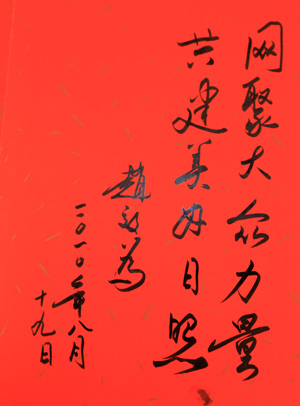 网聚大众力量
共建美好日照
趙效為
二〇一〇年八月
十九日